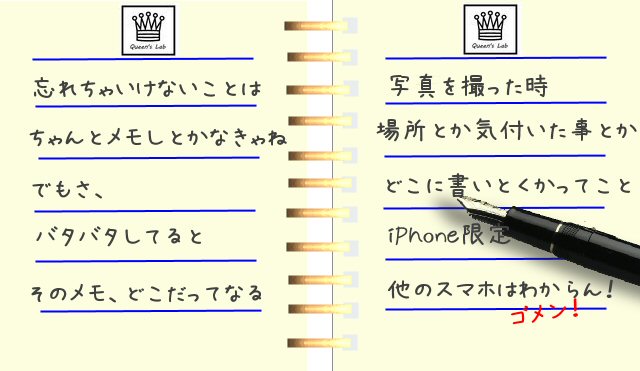 Queen's Lab
忘れちゃいけないことは
ちゃんとメモしとかなきゃね
でもさ、
バタバタしてると
そのメモ、どこだってなる
Queen's Lab
写真を撮った時
場所とか気付いた事とか
どこに書いとくかってこと
iPhone限定
他のスマホはわからん!
ゴメン!